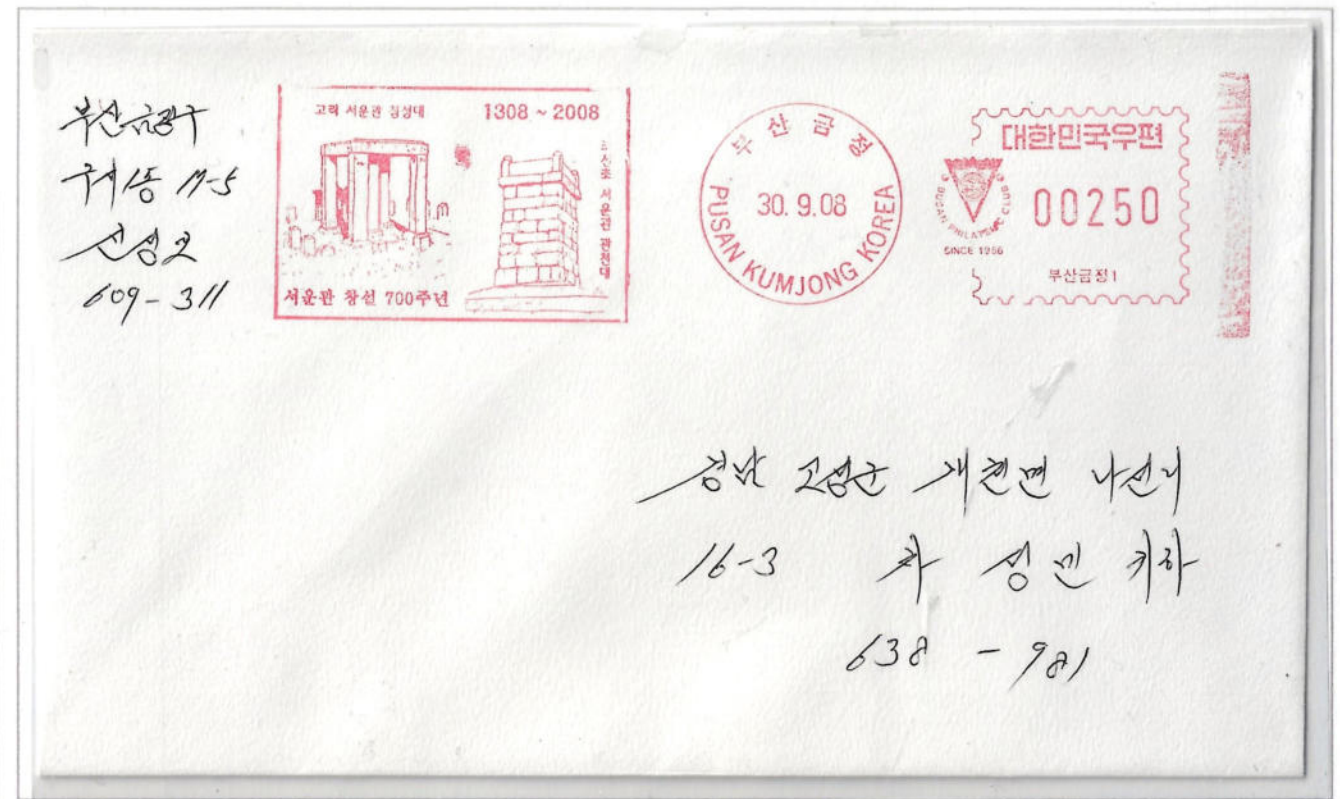 부산 금정구
구서1동 17-5
선성오
609-311
고려 서운관 첨성대
1308 ~ 2008
서운관 관천대
서운관 창설 700주년
부산금정
30. 9.08
PUSAN KUMJONG KOREA
대한민국우편
BUSAN PHILATELIC CLUB
SINCE 1966
00250
부산금정1
경남 고성군 개천면 나선리
16-3 차 성민 귀하
638-981